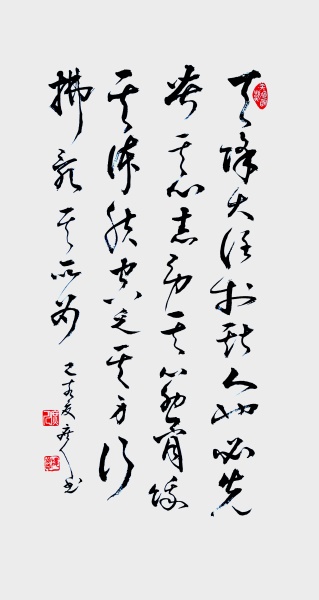 天降大任於斯人也必先
苦其心志劳其筋骨饿
其体肤空乏其身行
拂乱其所为
己亥夏
书